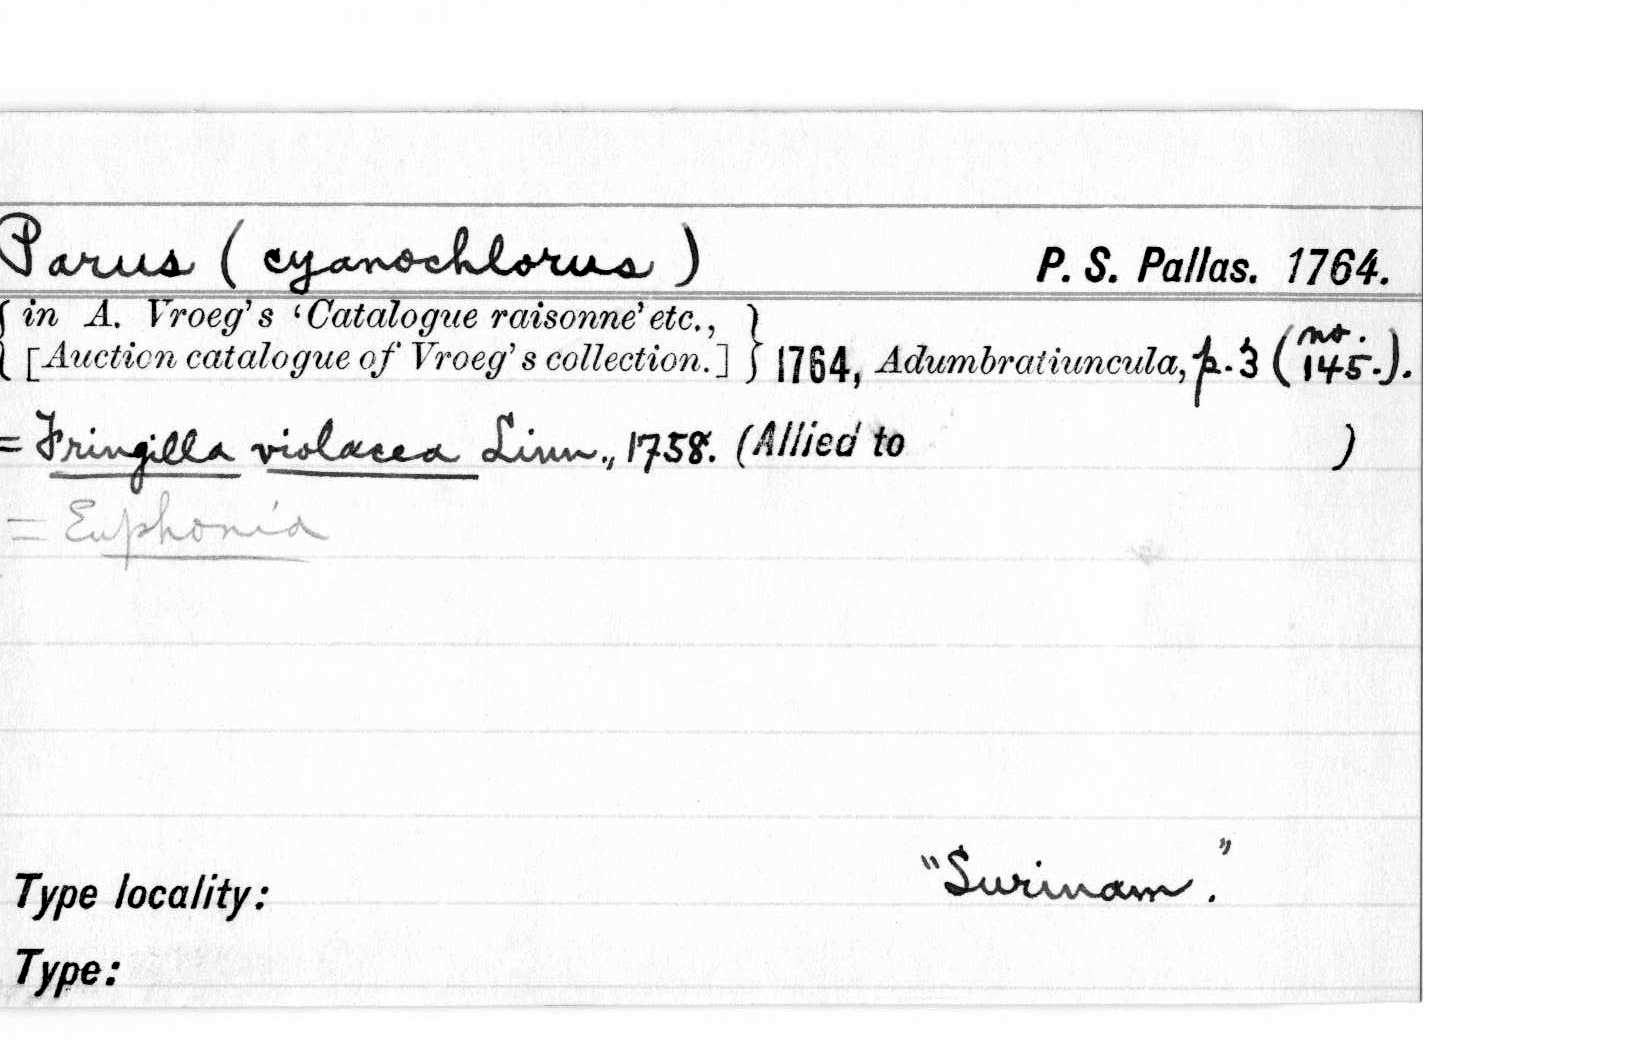 Parus (cyanochlorus) P. S. Pallas. 1764.
{ in A. Vroeg's ‘Catalogue raisonne’ etc., }
{ [Auction catalogue of Vroeg's collection.] } 1764, Adumbratiuncula, p. 3 (no. 145.).
= Fringilla violacea Linn., 1758. (Allied to )
= Euphonia
"Surinam."
Type locality:
Type: